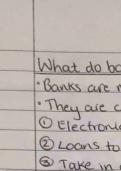 What do ba
• Banks are
• They are c
① Electronic
② Loans to
③ Take in